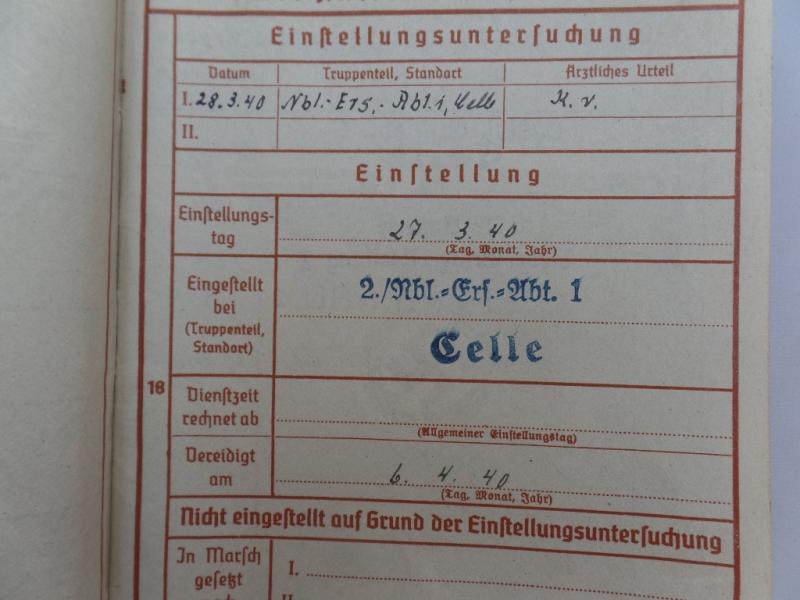 Einstellungsuntersuchung
Datum Truppenteil, Standort Ärztliches Urteil
I. 28.3.40 Nbl.-Ers.-Abt. 1, Celle K. v.
II.
Einstellung
Einstellungs-
tag
27. 3. 40
(Tag, Monat, Jahr)
Eingestellt
bei
(Truppenteil,
Standort)
2./Nbl.-Ers.-Abt. 1
Celle
18
Dienstzeit
rechnet ab
(Allgemeiner Einstellungstag)
Vereidigt
am
6. 4. 40
(Tag, Monat, Jahr)
Nicht eingestellt auf Grund der Einstellungsuntersuchung
In Marsch
gesetzt
I.